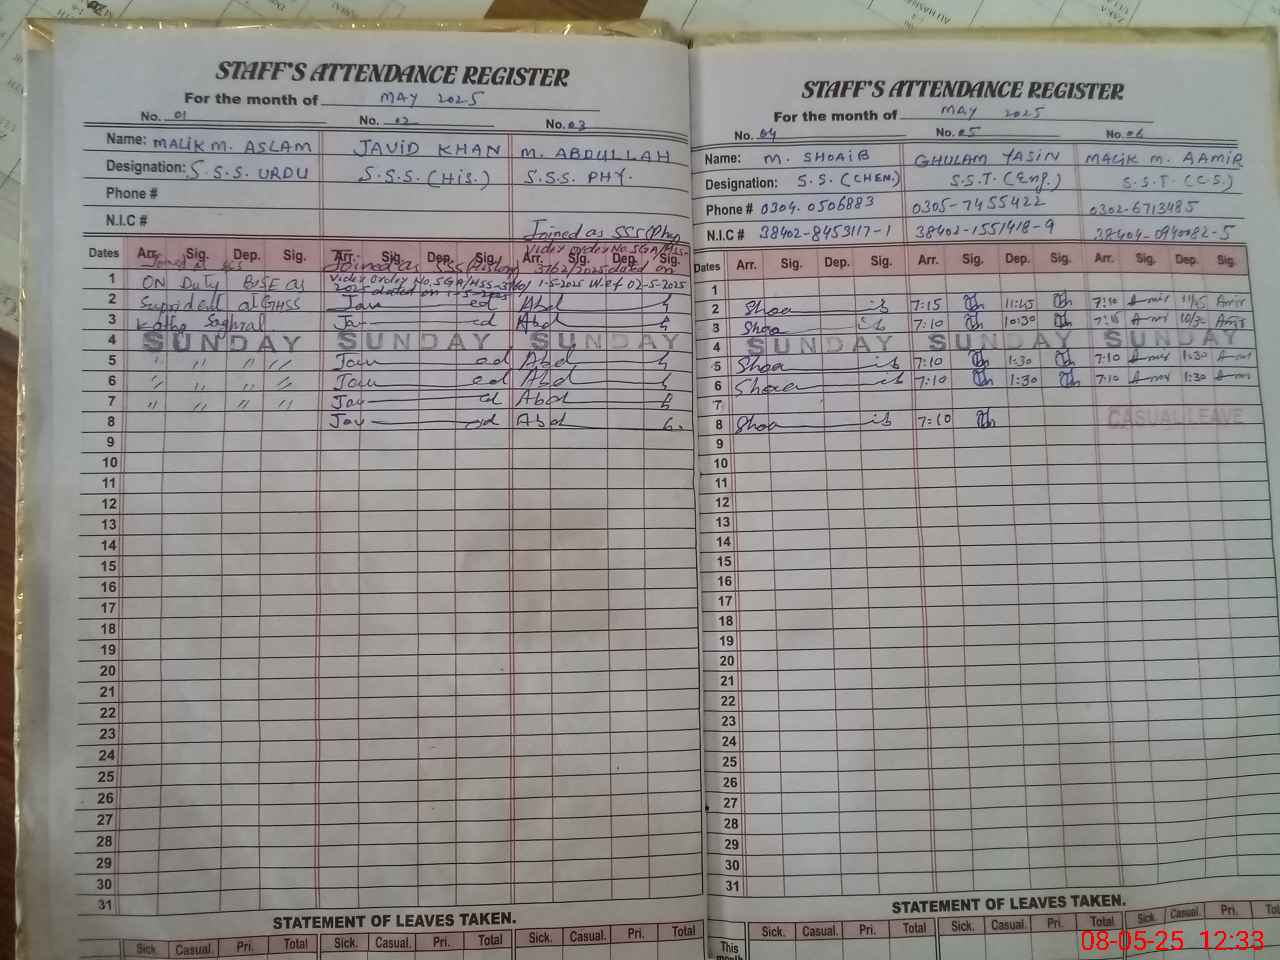 STAFF'S ATTENDANCE REGISTER
For the month of MAY 2025
No. 01 No. 02 No. 03
Name: MALIK M. ASLAM JAVID KHAN M. ABDULLAH
Designation: S.S.S. URDU S.S.S. (HiS.) S.S.S. PHY.
Phone #
N.I.C #
Joined as SSS (Phy)
Dates Arr. Sig. Dep. Sig. Arr. Sig. Dep. Sig. Arr. Sig. Dep. Sig.
Joined as SSS (History)
Vide order No. SGA/HSS-
3762/2025 dated on
1-5-2025 w.e.f 02-5-2025
Vide order No. SGA/HSS-
2025 dated on 1-5-2025
1 ON Duty BISE as
2 Supridedl at GHSS Jav ed Abd h
3 Katha Saghral Jav ed Abd h
4 SUNDAY SUNDAY SUNDAY
5 " " " " Jav ed Abd h
6 " " " " Jav ed Abd h
7 " " " " Jav ed Abd h
8 Jav ed Abd h
9
10
11
12
13
14
15
16
17
18
19
20
21
22
23
24
25
26
27
28
29
30
31
STATEMENT OF LEAVES TAKEN.
Sick. Casual. Pri. Total Sick. Casual. Pri. Total Sick. Casual. Pri. Total
STAFF'S ATTENDANCE REGISTER
For the month of MAY 2025
No. 04 No. 05 No. 06
Name: M. SHOAIB GHULAM YASIN MALIK M. AAMIR
Designation: S.S. (CHEM.) S.S.T. (Eng.) S.S.T. (C.S.)
Phone # 0304-0506883 0305-7455422 0302-6713485
N.I.C # 38402-8453117-1 38402-1551418-9 38404-0940082-5
Dates Arr. Sig. Dep. Sig. Arr. Sig. Dep. Sig. Arr. Sig. Dep. Sig.
1
2 Shoa ib 7:15 11:45 7:10 Amir 11:45 Amir
3 Shoa ib 7:10 10:30 7:15 Amir 10:30 Amir
4 SUNDAY SUNDAY SUNDAY
5 Shoa ib 7:10 1:30 7:10 Amir 1:30 Amir
6 Shoa ib 7:10 1:30 7:10 Amir 1:30 Amir
7
8 Shoa ib 7:10 CASUAL LEAVE
9
10
11
12
13
14
15
16
17
18
19
20
21
22
23
24
25
26
27
28
29
30
31
STATEMENT OF LEAVES TAKEN.
This month Sick. Casual. Pri. Total Sick. Casual. Pri. Total Sick. Casual. Pri.
08-05-25 12:33